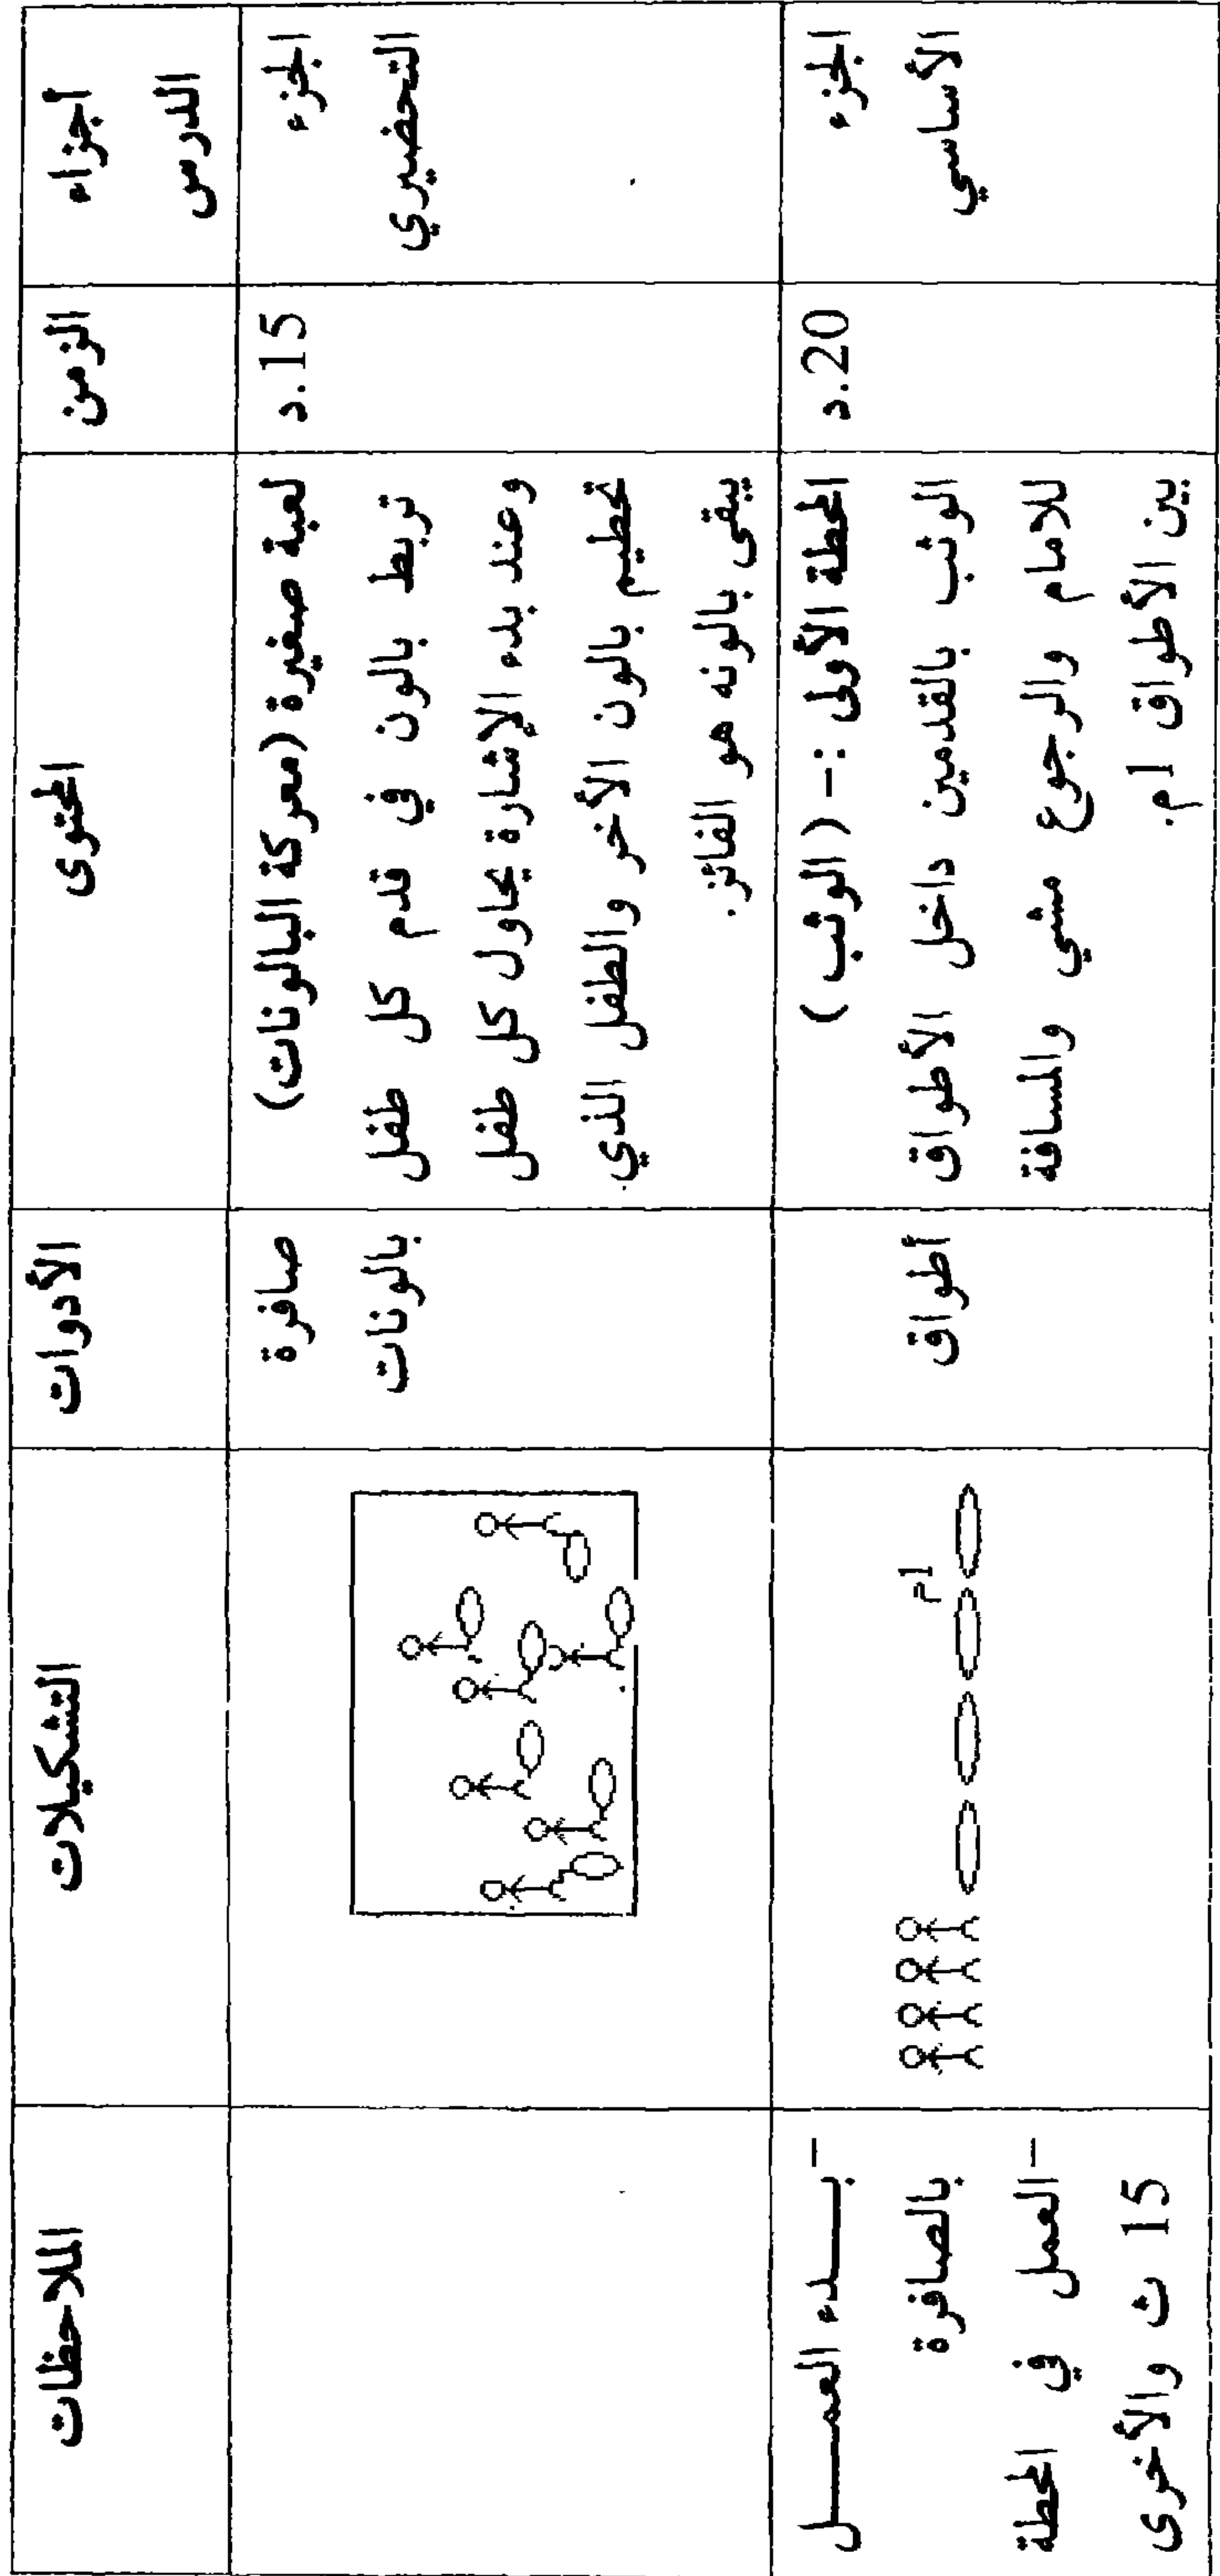 أجزاء
الدرس
الزمن
المحتوى
الأدوات
التشكيلات
الملاحظات
الجزء
التحضيري
15.د
لعبة صغيرة (معركة البالونات)
تربط بالون في قدم كل طفل
وعند بدء الإشارة يحاول كل طفل
تحطيم بالون الأخر والطفل الذي
يبقى بالونه هو الفائز.
صافرة
بالونات
الجزء
الأساسي
20.د
المحطة الأولى :- ( الوثب )
الوثب بالقدمين داخل الأطواق
للامام والرجوع مشي والمسافة
بين الأطواق 1م.
أطواق
1م
-بـــدء العمـــل
بالصافرة
-العمل في المحطة
15 ث والأخرى